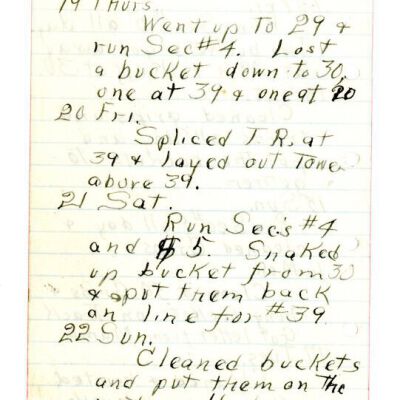 19 Thurs.
Went up to 29 &
run Sec #4. Lost
a bucket down to 30,
one at 39 & one at 20
20 Fri.
Spliced T. R. at
39 & layed out Tower
above 39.
21 Sat.
Run Sec's #4
and #5. Snaked
up bucket from 30
& put them back
on line for #39.
22 Sun.
Cleaned buckets
and put them on the